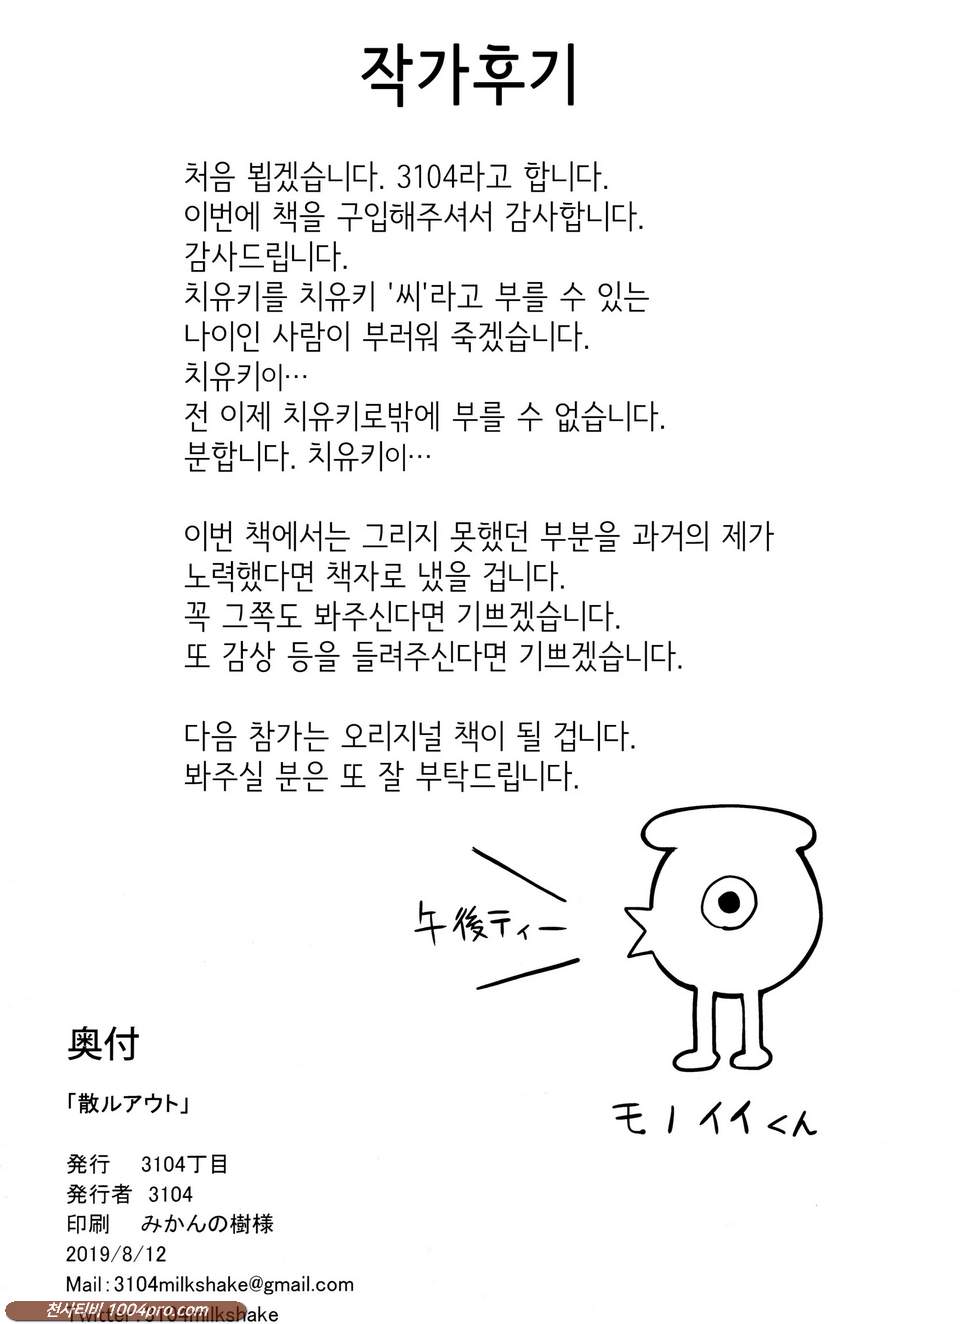 작가후기
처음 뵙겠습니다. 3104라고 합니다.
이번에 책을 구입해주셔서 감사합니다.
감사드립니다.
치유키를 치유키 '씨'라고 부를 수 있는
나이인 사람이 부러워 죽겠습니다.
치유키이…
전 이제 치유키로밖에 부를 수 없습니다.
분합니다. 치유키이…
이번 책에서는 그리지 못했던 부분을 과거의 제가
노력했다면 책자로 냈을 겁니다.
꼭 그쪽도 봐주신다면 기쁘겠습니다.
또 감상 등을 들려주신다면 기쁘겠습니다.
다음 참가는 오리지널 책이 될 겁니다.
봐주실 분은 또 잘 부탁드립니다.
午後ティー
モノイイくん
奥付
「散ルアウト」
発行 3104丁目
発行者 3104
印刷 みかんの樹様
2019/8/12
Mail:3104milkshake@gmail.com
Twitter:3104milkshake
천사티비 1004pro.com